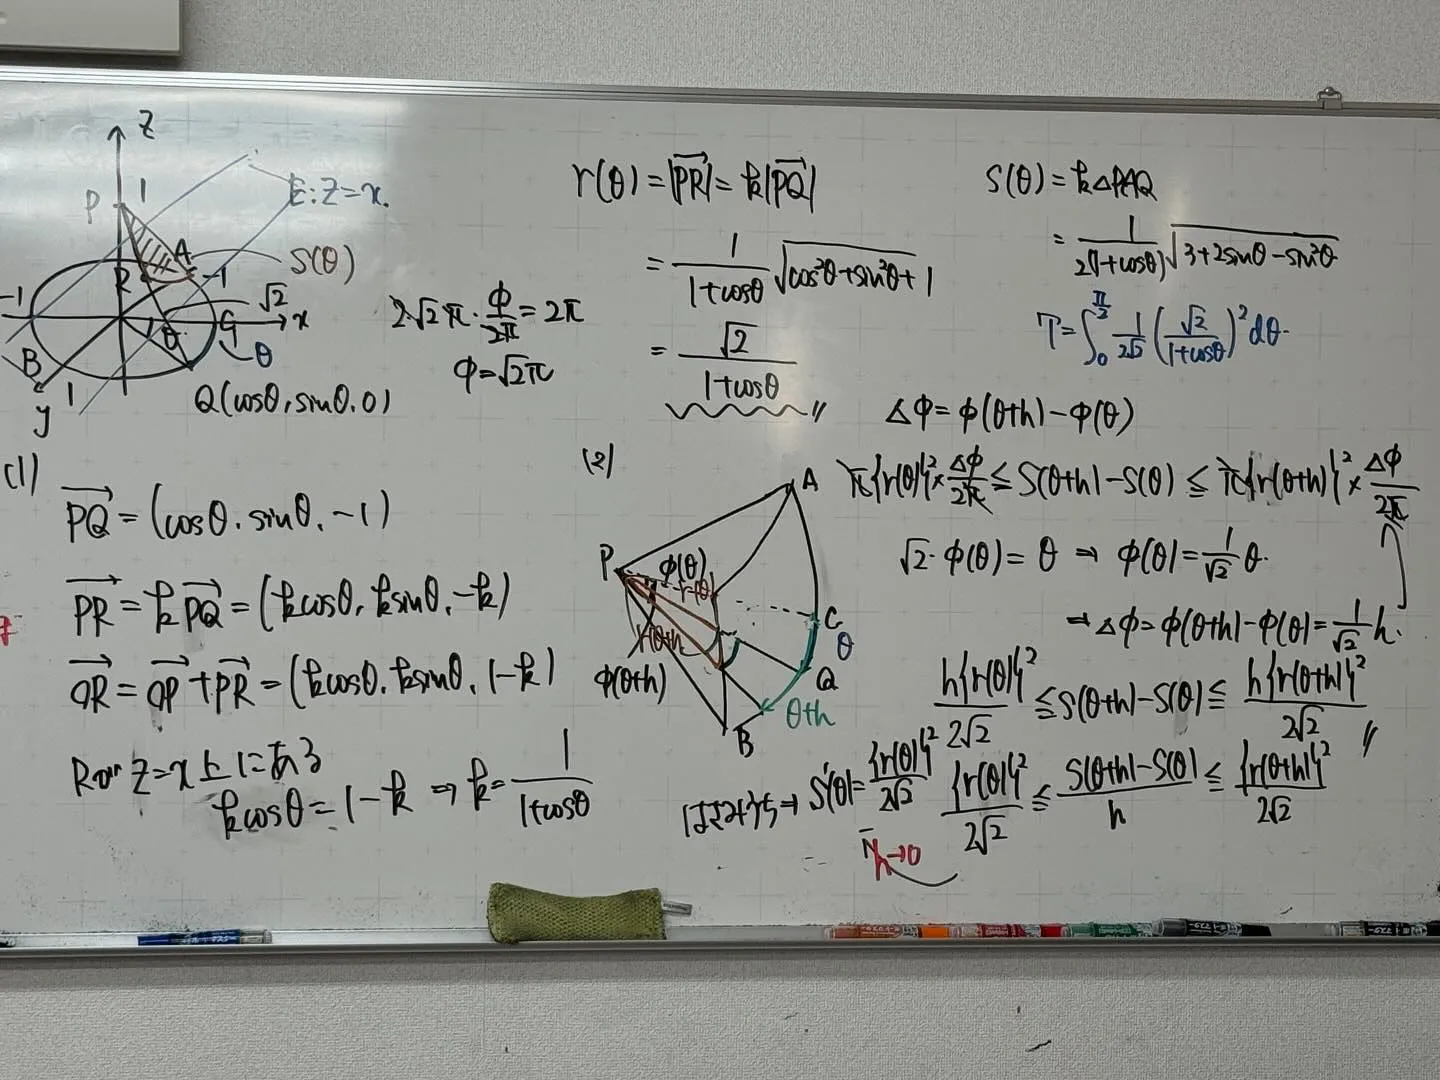 z
P
1
E: z=x.
A
R
S(θ)
-1
1
√2
x
C
θ
B
θ
1
y
Q(cosθ, sinθ, 0)
2√2π · φ/2π = 2π
φ=√2π
r(θ) = |PR→| = k|PQ→|
= 1/(1+cosθ) √(cos²θ+sin²θ+1)
= √2/(1+cosθ) 〃
S(θ) = k△PAQ
= 1/2(1+cosθ) √(3+2sinθ-sin²θ)
T=∫₀^(π/2) 1/2√2 (√2/(1+cosθ))² dθ.
(1)
PQ→ = (cosθ, sinθ, -1)
PR→ = kPQ→ = (kcosθ, ksinθ, -k)
OR→ = OP→ + PR→ = (kcosθ, ksinθ, 1-k)
Rが z=x上にある
kcosθ = 1-k ⇒ k= 1/(1+cosθ)
(2)
A
P
φ(θ)
r(θ)
C
θ
r(θ+h)
φ(θ+h)
Q
θ+h
B
△φ = φ(θ+h) - φ(θ)
π{r(θ)}² × △φ/2π ≦ S(θ+h) - S(θ) ≦ π{r(θ+h)}² × △φ/2π
√2 · φ(θ) = θ ⇒ φ(θ) = 1/√2 θ.
⇒ △φ = φ(θ+h) - φ(θ) = 1/√2 h.
h{r(θ)}²/2√2 ≦ S(θ+h) - S(θ) ≦ h{r(θ+h)}²/2√2 〃
{r(θ)}²/2√2 ≦ (S(θ+h) - S(θ))/h ≦ {r(θ+h)}²/2√2
はさみうち→ S'(θ) = {r(θ)}²/2√2
h→0